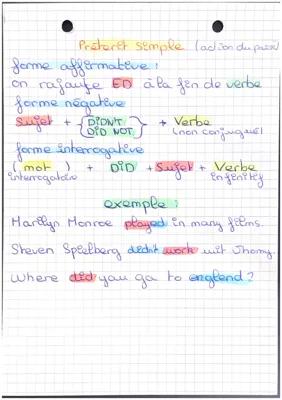 Préterit simple (action du passé)
forme affirmative :
on rajoute ED à la fin de verbe
forme négative
Sujet + { DIDN'T } + Verbe
DID NOT (non conjugué)
forme interrogative
( mot ) + DID + Sujet + Verbe
interrogatoire infinitif
exemple :
Marilyn Monroe played in many films.
Steven Spielberg didnt work wit Jhomy.
Where did you go to englend ?